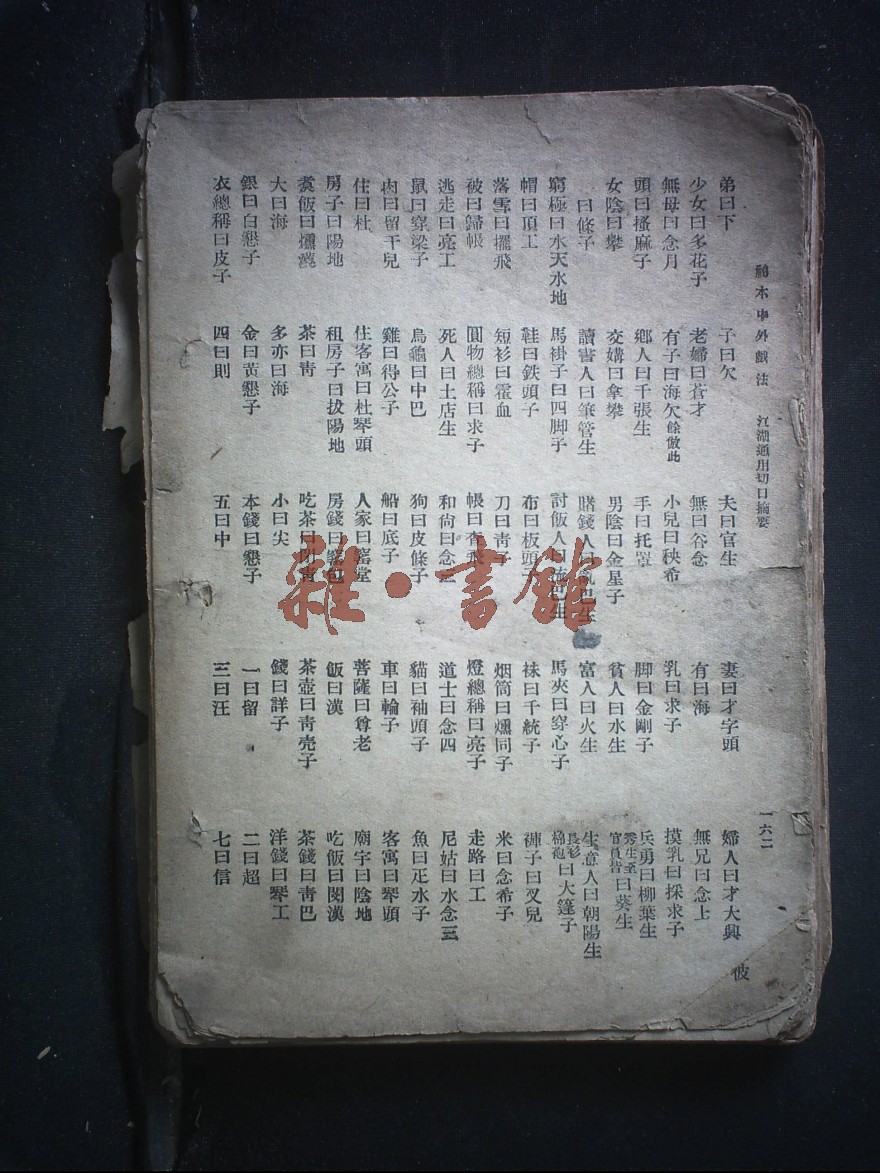 中外戲法　江湖通用切口摘要　一六二
弟曰下　子曰欠　夫曰官生　妻曰才字頭　婦人曰才大興　彼
少女曰多花子　老婦曰蒼才　無曰谷念　有曰海　無兄曰念上
無母曰念月　有子曰海欠餘倣此　小兒曰秧希　乳曰求子　摸乳曰採求子
頭曰搔麻子　鄉人曰千張生　手曰托罩　脚曰金剛子　兵勇曰柳葉生
女陰曰攀　交媾曰拿攀　男陰曰金星子　貧人曰水生　秀生至官員皆曰葵生
曰條子　讀書人曰筆管生　賭錢人曰巴生　富人曰火生　生意人曰朝陽生
窮極曰水天水地　馬褂子曰四脚子　討飯人曰生　馬夾曰穿心子　長衫棉袍曰大篷子
帽曰頂工　鞋曰鉄頭子　布曰板頭　袜曰千統子　褲子曰叉兒
落雪曰擺飛　短衫曰霍血　刀曰靑子　烟筒曰燻同子　米曰念希子
被曰歸帳　圓物總稱曰求子　帳曰　燈總稱曰亮子　走路曰工
逃走曰亮工　死人曰土店生　和尚曰念　道士曰念四　尼姑曰水念三
鼠曰穿梁子　烏龜曰中巴　狗曰皮條子　貓曰袖頭子　魚曰正水子
肉曰留干兒　雞曰得公子　船曰底子　車曰輪子　客寓曰琴頭
住曰杜　住客寓曰杜琴頭　人家曰窰堂　菩薩曰尊老　廟宇曰陰地
房子曰陽地　租房子曰拔陽地　房錢曰巴　飯曰漢　吃飯曰閔漢
煑飯曰燻漢　茶曰靑　吃茶曰閔靑　茶壺曰靑壳子　茶錢曰靑巴
大曰海　多亦曰海　小曰尖　錢曰詳子　洋錢曰琴工
銀曰白懇子　金曰黃懇子　本錢曰懇子　一曰留　二曰超
衣總稱曰皮子　四曰則　五曰中　三曰汪　七曰信
雜·書館